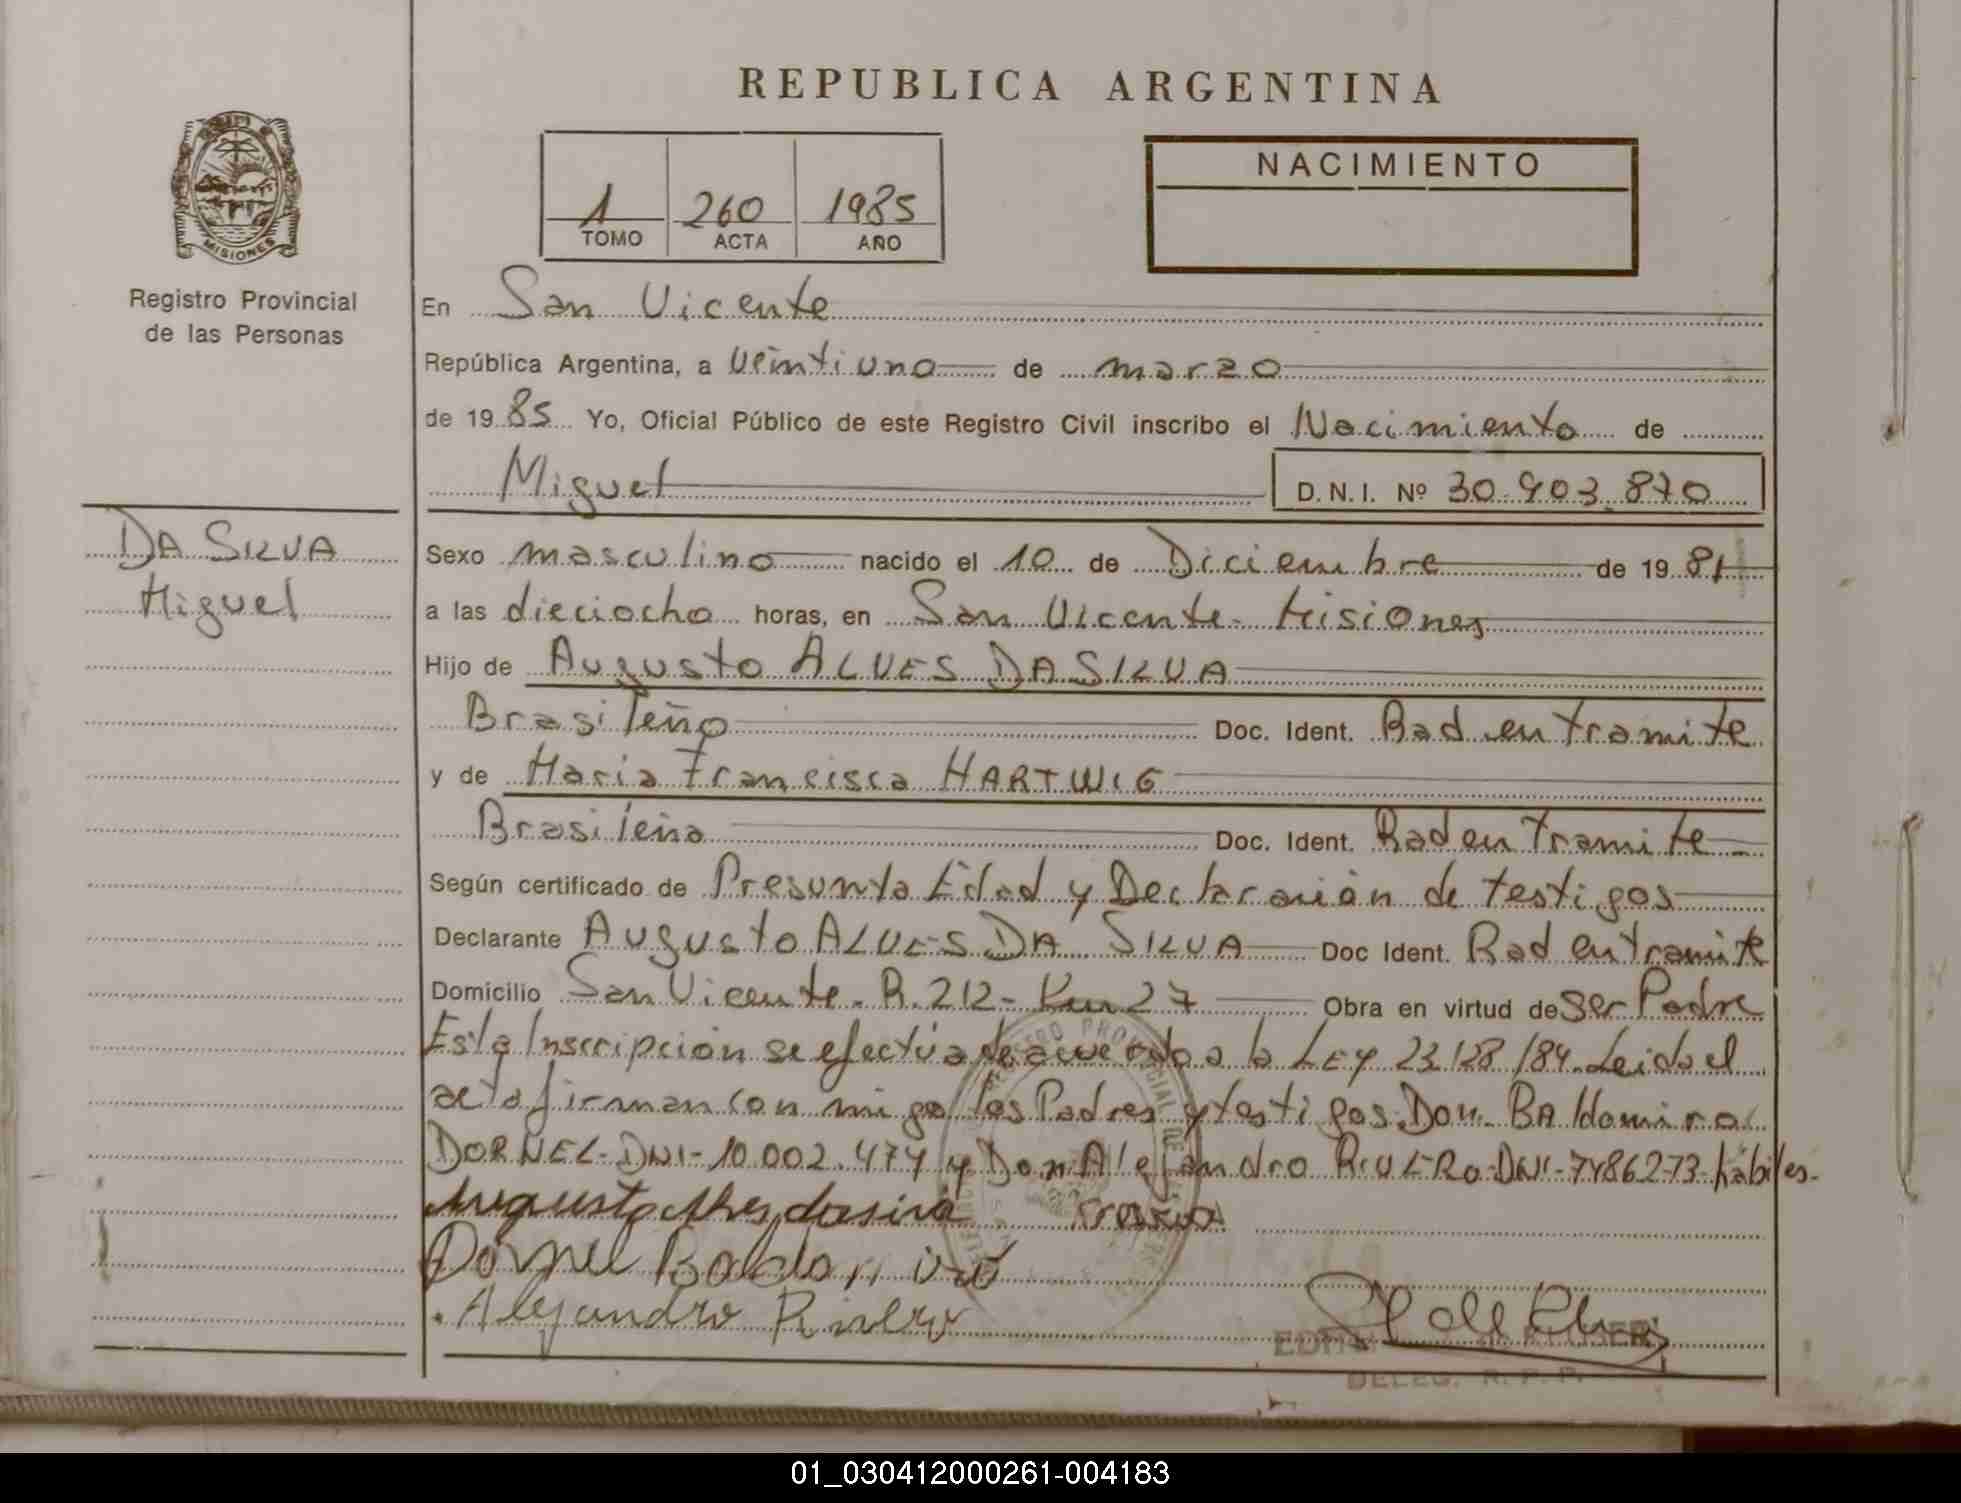 REPUBLICA ARGENTINA
MISIONES
Registro Provincial
de las Personas
1 260 1985
TOMO ACTA AÑO
NACIMIENTO
En San Vicente
República Argentina, a veintiuno de marzo
de 1985 Yo, Oficial Público de este Registro Civil inscribo el Nacimiento de
Miguel D.N.I. Nº 30.903.870
DA SILVA
Miguel
Sexo masculino nacido el 10 de Diciembre de 1981
a las dieciocho horas, en San Vicente - Misiones
Hijo de Augusto ALVES DA SILVA
Brasileño Doc. Ident. Rad en tramite
y de Maria Francisca HARTWIG
Brasileña Doc. Ident. Rad en tramite
Según certificado de Presunta Edad y Declaración de testigos
Declarante Augusto ALVES DA SILVA Doc Ident. Rad en tramite
Domicilio San Vicente - R. 212 - Km 27 Obra en virtud de ser Padre
Esta Inscripción se efectúa de acuerdo a la LEY 23.128/84. Leida el
acta firman con migo los Padres y testigos Don BAldomiro
DORNEL - DNI - 10.002.474 y Don Alejandro RIVERO - DNI - 7486273 hábiles.
Augusto Alves dasiva
Dornel Baldomiro
Alejandro Rivero
DELEG. R. P. P.
01_030412000261-004183